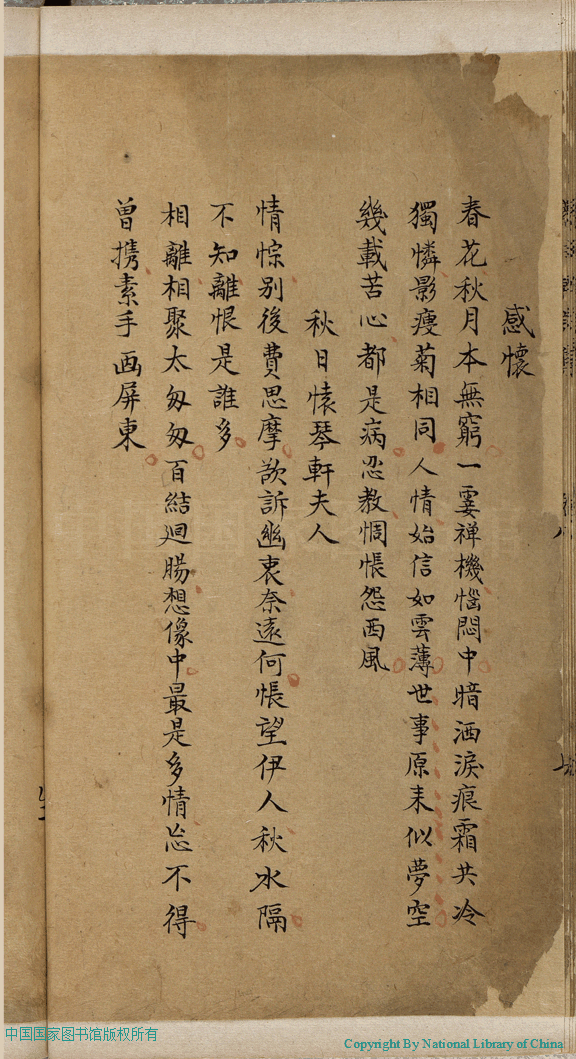 感懷
春花秋月本無窮一霎禅機惱悶中暗洒淚痕霜共冷
獨憐影瘦菊相同人情始信如雲薄世事原耒似夢空
幾載苦心都是病忍教惆悵怨西風
秋日懷琴軒夫人
情悰别後費思摩欲訴幽衷奈遠何悵望伊人秋水隔
不知離恨是誰多
相離相聚太匆匆百結廻腸想像中最是多情忘不得
曾携素手画屏東
中国国家图书馆版权所有
Copyright By National Library of China